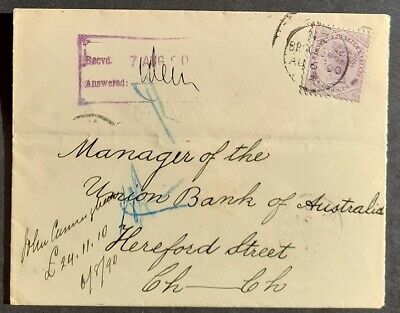 Recvd. 7 AUG 90
Answered:
Manager of the
Union Bank of Australia
Hereford Street
Ch—Ch
John Cunningham
£24.11.10
6/8/90
AU